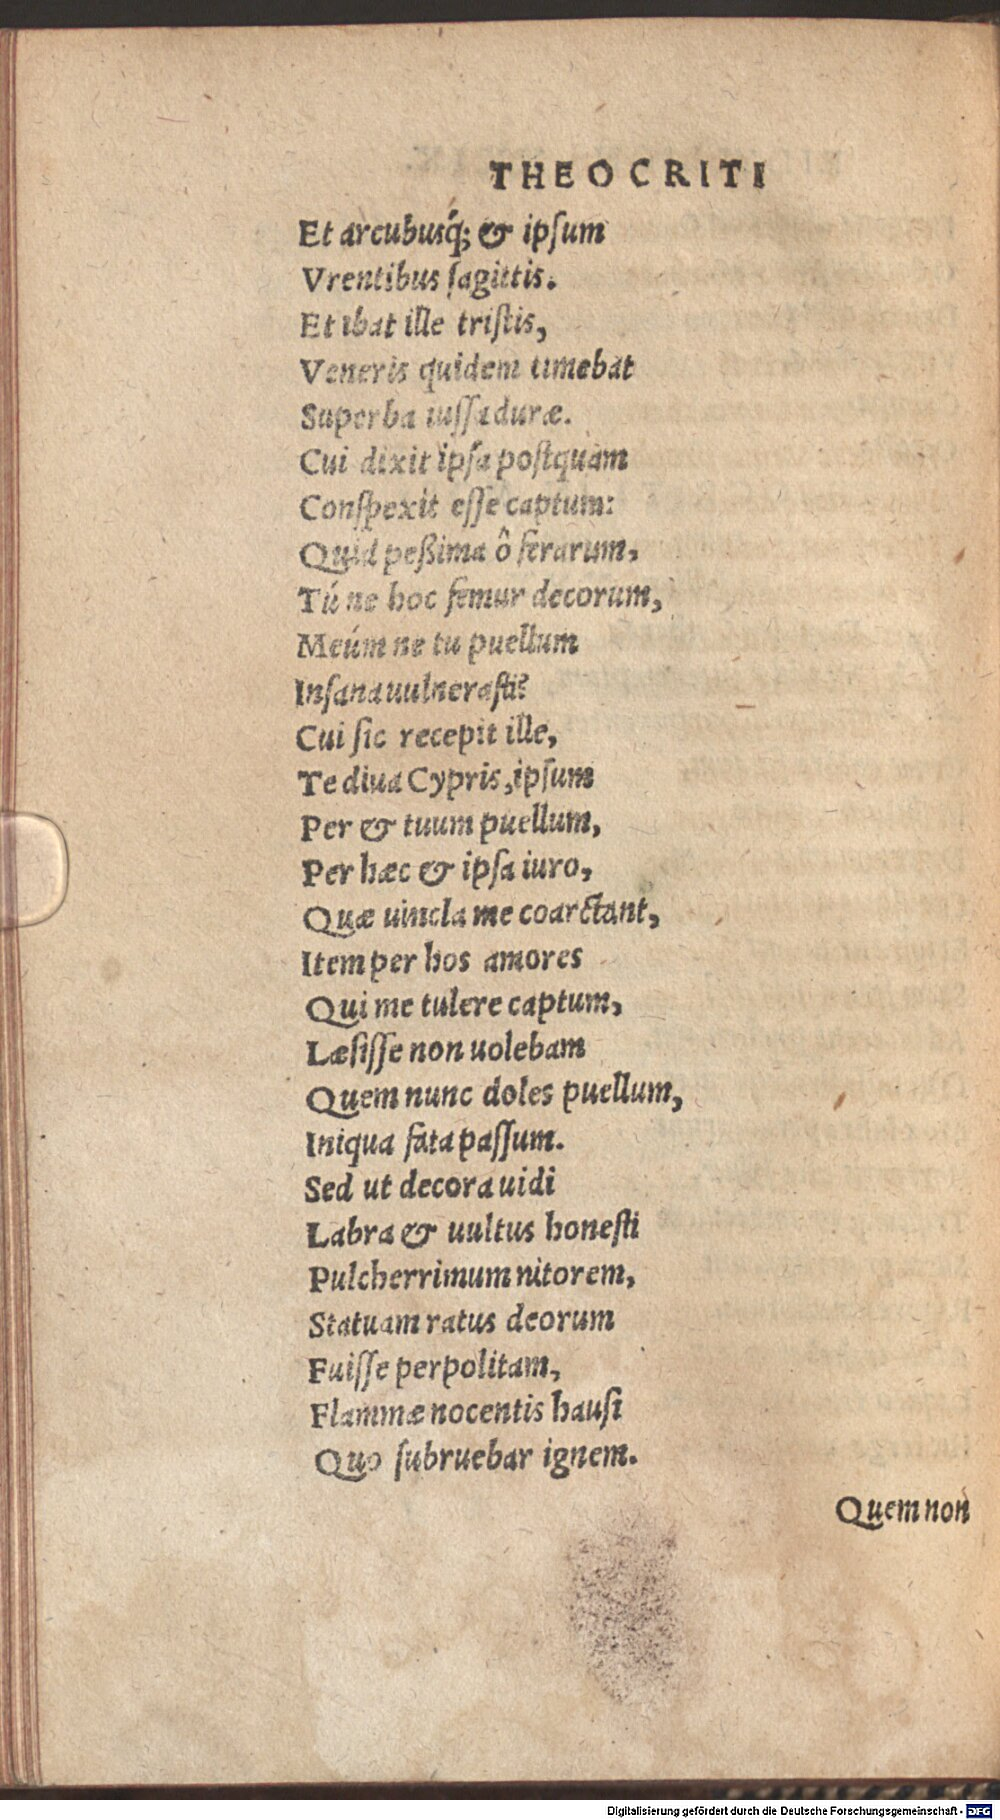 THEOCRITI
Et arcubusq́; & ipſum
Vrentibus ſagittis.
Et ibat ille triſtis,
Veneris quidem timebat
Superba iuſſa duræ.
Cui dixit ipſa poſtquàm
Conſpexit eſſe captum:
Quid peßima ô ferarum,
Tú ne hoc femur decorum,
Meúm ne tu puellum
Inſana uulneraſti?
Cui ſic recepit ille,
Te diua Cypris, ipſum
Per & tuum puellum,
Per hæc & ipſa iuro,
Quæ uincla me coarctant,
Item per hos amores
Qui me tulere captum,
Læſiſſe non uolebam
Quem nunc doles puellum,
Iniqua fata paſſum.
Sed ut decora uidi
Labra & uultus honeſti
Pulcherrimum nitorem,
Statuam ratus deorum
Fuiſſe perpolitam,
Flammæ nocentis hauſi
Quo ſubruebar ignem.
Quem non
Digitalisierung gefördert durch die Deutsche Forschungsgemeinschaft - DFG